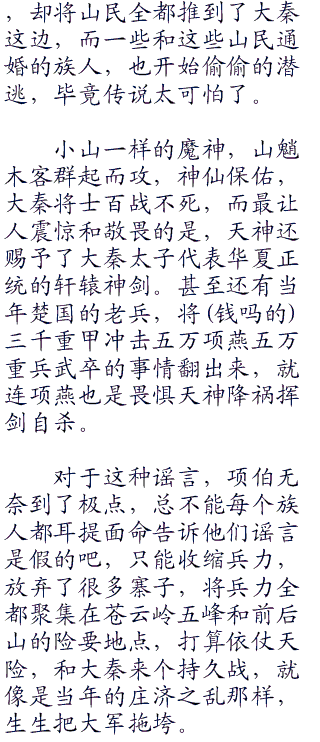 ，却将山民全都推到了大秦
这边，而一些和这些山民通
婚的族人，也开始偷偷的潜
逃，毕竟传说太可怕了。
小山一样的魔神，山魈
木客群起而攻，神仙保佑，
大秦将士百战不死，而最让
人震惊和敬畏的是，天神还
赐予了大秦太子代表华夏正
统的轩辕神剑。甚至还有当
年楚国的老兵，将(钱吗的)
三千重甲冲击五万项燕五万
重兵武卒的事情翻出来，就
连项燕也是畏惧天神降祸挥
剑自杀。
对于这种谣言，项伯无
奈到了极点，总不能每个族
人都耳提面命告诉他们谣言
是假的吧，只能收缩兵力，
放弃了很多寨子，将兵力全
都聚集在苍云岭五峰和前后
山的险要地点，打算依仗天
险，和大秦来个持久战，就
像是当年的庄济之乱那样，
生生把大军拖垮。